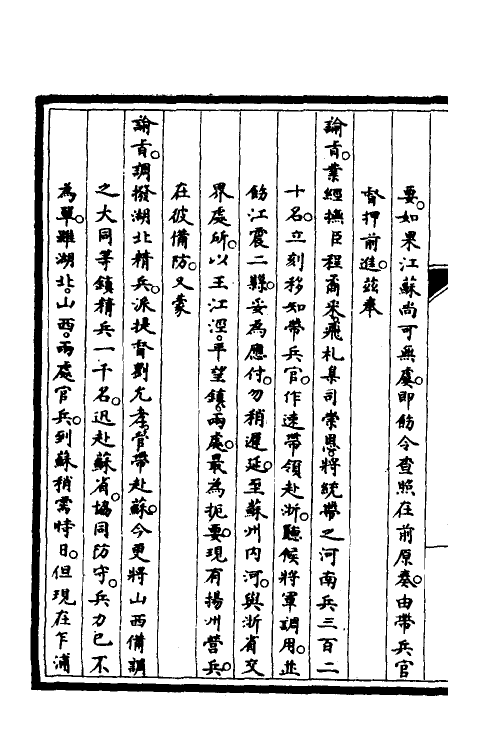 要。如果江蘇尚可無虞。即飭令查照在前原奏。由帶兵官
督押前進。茲奉
諭旨。業經撫臣程矞采飛札臬司崇恩將統帶之河南兵三百二
十名。立刻移知帶兵官。作速帶領赴浙。聽候將軍調用。並
飭江震二縣。妥為應付。勿稍遲延。至蘇州內河。與浙省交
界處所。以王江涇。平望鎮。兩處。最為扼要。現有揚州營兵。
在彼備防。又蒙
諭旨。調撥湖北精兵。派提督劉允孝管帶赴蘇。今更將山西備調
之大同等鎮精兵一千名。迅赴蘇省。協同防守。兵力已不
為單。雖湖北。山西。兩處官兵。到蘇稍需時日。但現在乍浦